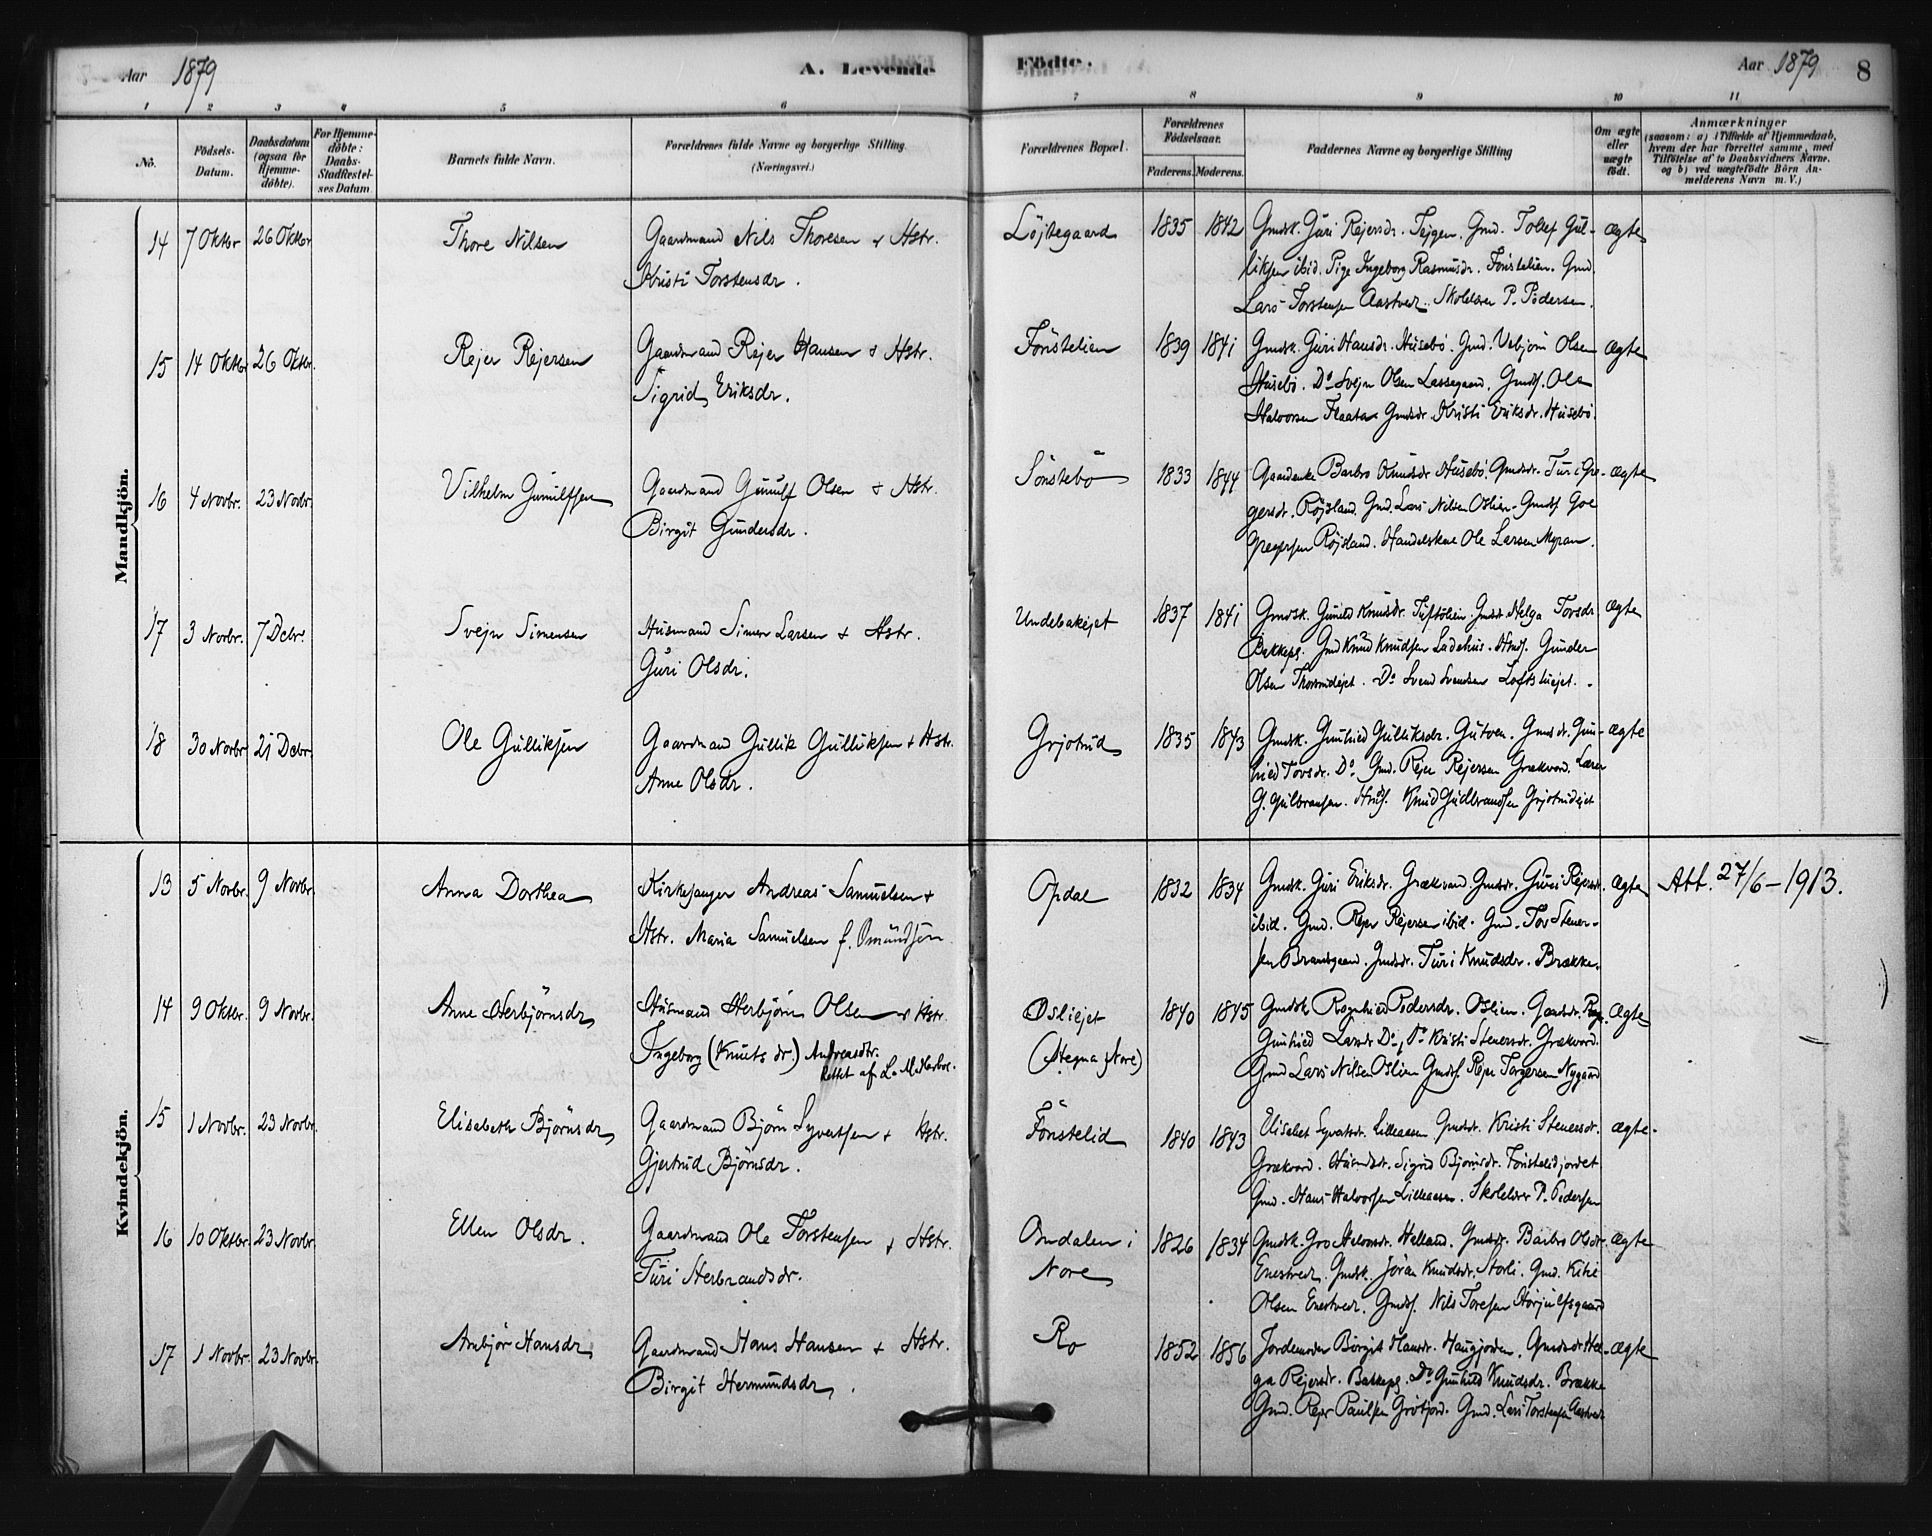 Aar 1879
A. Levende
Födte.
Aar 1879
8
1 2 3 4 5 6 7 8 9 10 11
No.
Födsels-
Datum.
Daabsdatum
(ogsaa for
Hjemme-
döbte).
For Hjemme-
döbte:
Daabs-
Stadfestel-
ses Datum
Barnets fulde Navn.
Forældrenes fulde Navne og borgerlige Stilling
(Næringsvei.)
Forældrenes Bopæl.
Forældrenes
Födselsaar.
Faderens. Moderens.
Faddernes Navne og borgerlige Stilling
Om ægte
eller
uægte
födt.
Anmærkninger
(saasom: a) i Tilfælde af Hjemmedaab,
hvem der har forrettet samme, med
Tilföielse af to Daabsvidners Navne.
og b) ved uægtefödte Börn An-
melderens Navn m. V.)
Mandkjön.
14 7 Oktbr 26 Oktbr Thore Nilsen Gaardmand Nils Thoresen & Hstr.
Kristi Torstensdr.
Löjtegaard 1835 1842 Gmdsk. Guri Rejersdr. Tejgen. Gmd. Tollef Gul-
liksen ibid. Pige Ingeborg Rasmusdr. Fönstelien. Gmd.
Lars Torstensen Aastved. Skolelærer P. Pedersen.
ægte
15 14 Oktbr 26 Oktbr. Rejer Rejersen Gaardmand Rejer Hansen & Hstr.
Sigrid Eriksdr.
Fönstelien 1839 1841 Gmdsk. Guri Hansdr. Husebö. Gmd. Vebjörn Olsen
Husebö. Do Svejn Olsen Lassegaard. Gmds. Ole
Halvorsen Flaata. Gmdsdr. Kristi Eriksdr. Husebö.
ægte
16 4 Novbr. 23 Novbr. Vilhelm Gunulfsen Gaardmand Gunulf Olsen & Hstr.
Birgit Gundersdr.
Sönstebö 1833 1844 Gaardenke Barbro Knudsdr. Husebö. Gmdsdr. Turi Gre-
gersdr. Röjsland. Gmd. Lars Nilsen Oslien. Gmds. Goe
Gregersen Röjsland. Handelskar Ole Larsen Myran.
ægte
17 3 Novbr. 7 Dcbr. Svejn Simensen Husmand Simen Larsen & Hstr.
Guri Olsdr.
Undebakejet 1837 1841 Gmdsk. Gunild Knudsdr. Tuftelien. Gmdsdr. Helga Torsdr.
Bakkepl. Gmd Knud Knudsen Ladehus. Hmds. Gunder
Olsen Thorsrudejet. Do Svend Svendsen Loftstuejet.
ægte
18 30 Novbr 21 Dcbr. Ole Gulliksen Gaardmand Gullik Gulliksen & Hstr.
Anne Olsdr.
Grjotrud 1835 1843 Gmdsk. Gunhild Gulliksdr. Gutven. Gmdsdr. Gun-
hild Tovsdr. Do Gmd. Rejer Rejersen Grækvord. Lærer
G. Gulbransen. Hmds. Knud Gudbrandsen Grjotrudejet
ægte
Kvindekjön.
13 5 Novbr. 9 Novbr. Anna Dorthea Kirkesanger Andreas Samuelsen &
Hstr. Maria Samuelsen f. Omundsen.
Opdal 1832 1834 Gmdsk. Guri Eriksdr. Grækvord. Gmdsdr. Guri Rejersdr.
ibid. Gmd. Rejer Rejersen ibid. Gmd. Tov Stener-
sen Brandgaard. Gmdsdr. Turi Knudsdr. Brække.
ægte Att. 27/6 – 1913.
14 9 Oktbr. 9 Novbr. Anne Herbjörnsdr. Husmand Herbjörn Olsen & Hstr.
Ingeborg (Knutsdr.) Andreasdtr.
Rettet af
Osliejet
(Hegna Nore)
1840 1845 Gmdsk Ragnhild Pedersdr. Oslien. Gaardsdr.
Gunhild Larsdr. Do, Do Kristi Stenersdr. Grækvord.
Gmd Lars Nilsen Oslien Gmds. Rejer Torgersen Nygaard
ægte
15 1 Novbr. 23 Novbr. Elisabeth Björnsdr. Gaardmand Björn Syvertsen & Hstr.
Gjertrud Björnsdr.
Fönstelid 1840 1843 Elisabet Syvertsdr. Lilleaasen Gmdsdr. Kristi Stenersdr.
Grækvord. Husmdsdr. Sigrid Björnsdr. Fönstelidjordet
Gmd. Hans Halvorsen Lilleaasen. Skolelærer P. Pedersen
ægte
16 10 Oktbr. 23 Novbr. Ellen Olsdr. Gaardmand Ole Torstensen & Hstr.
Turi Herbrandsdr.
Omdalen i
Nore
1826 1834 Gmdsk. Gro Halvorsdr. Helland. Gmdsdr. Barbro Olsdr.
Enestvedt. Gmdsk. Jöran Knudsdr. Storli. Gmd. Kitil
Olsen Enestvedt. Gmds. Nils Toresen Horjulfsgaard
ægte
17 1 Novbr. 23 Novbr. Anbjör Hansdr. Gaardmand Hans Hansen & Hstr.
Birgit Hermundsdr.
Ro 1852 1856 Jordemoder Birgit Hansdr. Haugjorden. Gmdsdr Hel-
ga Rejersdr. Bakkepl. Do Gunhild Knudsdr. Brække
Gmd. Rejer Paulsen Grotjord. Gmd. Lars Torstensen Aastved
ægte